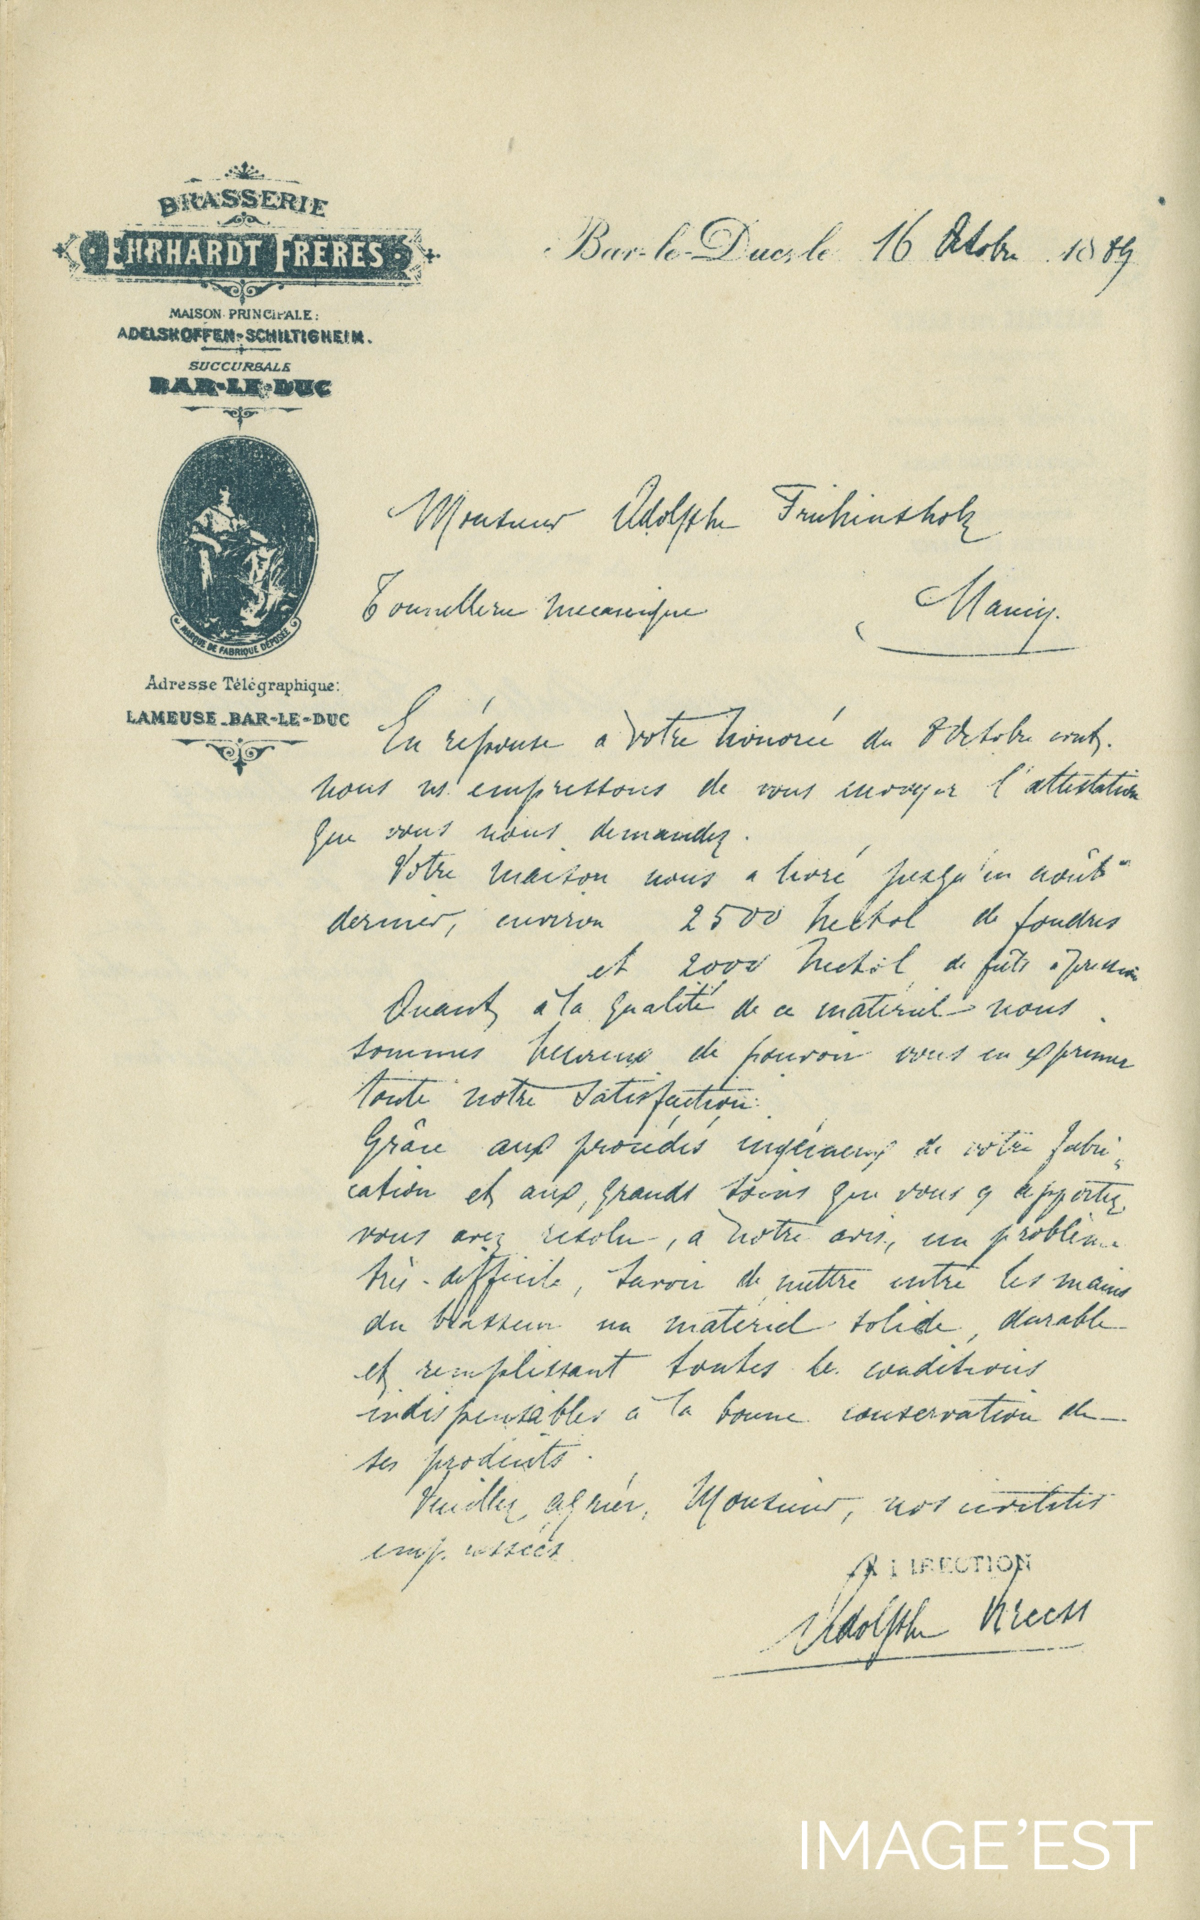 BRASSERIE
EHRHARDT FRÈRES
MAISON PRINCIPALE:
ADELSHOFFEN-SCHILTIGHEIM.
SUCCURSALE
BAR-LE-DUC
MARQUE DE FABRIQUE DÉPOSÉE
Adresse Télégraphique:
LAMEUSE_BAR-LE-DUC
Bar-le-Duc, le 16 Octobre 1889
Monsieur Adolphe Fruhinsholz
Tonnellerie mecanique Nancy.
En réponse à votre honorée du 8 Octobre cont.
nous ns. empressons de vous envoyer l'attestation
que vous nous demandez.
Votre maison nous a livré jusqu'en août
dernier, environ 2500 hectol de foudres
et 2000 hectol de fûts à pression
Quant à la qualité de ce matériel nous
sommes heureux de pouvoir vous en exprimer
toute notre satisfaction.
Grâce aux procédés ingénieux de votre fabri-
cation et aux grands soins que vous y apportez
vous avez résolu, à notre avis, un problème
très-difficile, savoir de mettre entre les mains
du brasseur un matériel solide, durable
et remplissant toutes les conditions
indispensables à la bonne conservation de
ses produits.
Veuillez agréer, Monsieur, nos civilités
empressées
DIRECTION
Adolphe Kreess
IMAGE'EST